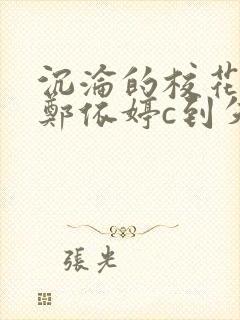 沉淪的校花
鄭依婷c到欠
張光